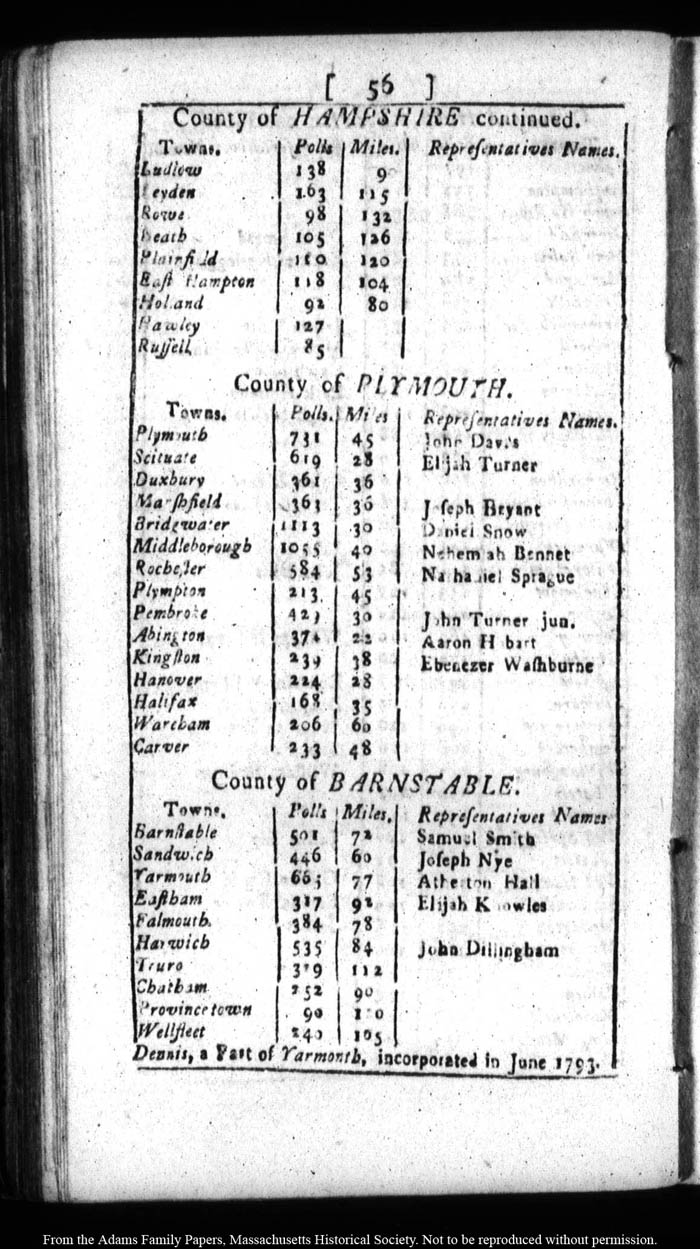 [ 56 ]
County of HAMPSHIRE continued.
Towns. Polls Miles. Repreſentatives Names.
Ludlow 138 9
Leyden 163 115
Rowe 98 132
Heath 105 126
Plainfield 120
Eaſt Hampton 118 104
Holand 92 80
Hawley 127
Ruſſell 85
County of PLYMOUTH.
Towns. Polls. Miles Repreſentatives Names.
Plymouth 731 45 John Davis
Scituate 619 28 Elijah Turner
Duxbury 361 36
Marſhfield 363 36 Joſeph Bryant
Bridgwater 1113 30 Daniel Snow
Middleborough 1055 40 Nehemiah Bennet
Rocheſter 584 53 Nathaniel Sprague
Plympton 213 45
Pembroke 30 John Turner jun.
Abington 22 Aaron Hobart
Kingſton 239 38 Ebenezer Waſhburne
Hanover 224 28
Halifax 168 35
Wareham 206 60
Carver 233 48
County of BARNSTABLE.
Towns. Polls Miles. Repreſentatives Names
Barnſtable 501 72 Samuel Smith
Sandwich 446 60 Joſeph Nye
Yarmouth 77 Atherton Hall
Eaſtham 317 92 Elijah Knowles
Falmouth. 384 78
Harwich 535 84 John Dillingham
Truro 112
Chatham 252 90
Provincetown 90
Wellfleet 240 105
Dennis, a Part of Yarmonth, incorporated in June 1793.
From the Adams Family Papers, Massachusetts Historical Society. Not to be reproduced without permission.